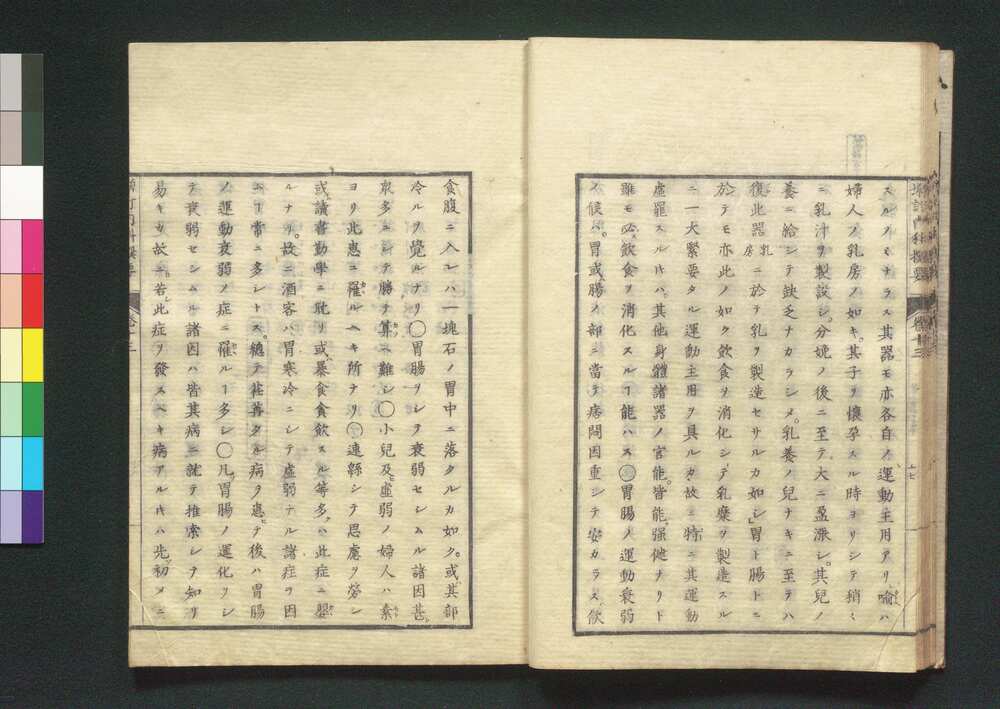 スルノミナラス其器モ亦各自ノ運動主用アリ喩ハ
婦人ノ乳房ノ如キ其子ヲ懐孕スル時ヨリシテ稍ミ
ニ乳汁ヲ製設シ分娩ノ後ニ至テ大ニ盈漲シ其兒ノ
養ニ給シテ缺乏ナカラシメ乳養ノ兒ナキニ至テハ
復此器乳房ニ於テ乳ヲ製造セサルカ如シ胃ト腸トニ
於テモ亦此ノ如ク飲食ヲ消化シテ乳糜ヲ製造スル
ニ一大緊要タル運動主用ヲ具ルカ故ニ特ニ其運動
虚罷スルハ其他身體諸器ノ官能皆能強健ナリト
雖モ必飲食ヲ消化スルヿ能ハス〇胃腸ノ運動衰弱
ノ候ハ胃或腸ノ部ニ當テ痞悶因重シテ安カラス飲
十七
増訂内科撰要
卷十三
食腹ニ入レハ一塊石ノ胃中ニ落タルカ如ク或其部
冷ルヲ覺ルナリ〇胃腸ヲシテ衰弱セシムル諸因甚
衆多ニシテ勝テ算ヘ難シ〇小兒及虚弱ノ婦人ハ素
ヨリ此患ニ罹ルヘキ所ナリ〇連緜シテ思慮ヲ勞シ
或讀書勤學ニ耽リ或暴食貪飲スル等多ハ此症ニ嬰
ルナリ故ニ酒客ハ胃寒冷ニシテ虚弱ナル諸症ヲ因
ニ常ニ多シトス總テ荏苒タル病ヲ患テ後ハ胃腸
ノ運動衰弱ノ症ニ罹ルヿ多シ〇凡胃腸ノ運化ヲシ
テ衰弱セシムル諸因ハ皆其病ニ就テ推索シテ知リ
易キカ故ニ若此症ヲ發スヘキ病アルハ先初メニ